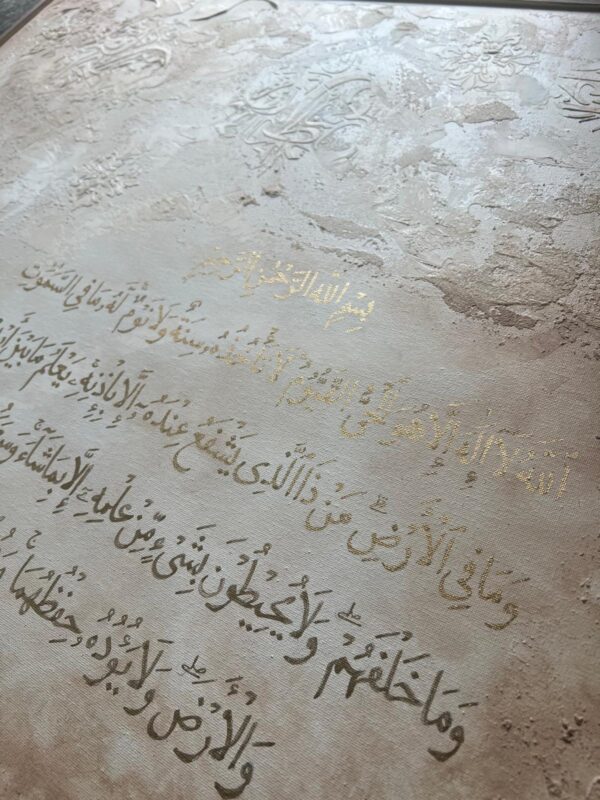 بِسْمِ اللهِ الرَّحْمٰنِ الرَّحِيْمِ
اَللّٰهُ لَآ اِلٰهَ اِلَّا هُوَ ۚ اَلْحَيُّ الْقَيُّوْمُ ۚ لَا تَأْخُذُهٗ سِنَةٌ وَّلَا نَوْمٌ ۚ لَهٗ مَا فِي السَّمٰوٰتِ
وَمَا فِي الْاَرْضِ ۗ مَنْ ذَا الَّذِيْ يَشْفَعُ عِنْدَهٗٓ اِلَّا بِاِذْنِهٖ ۚ يَعْلَمُ مَا بَيْنَ
وَمَا خَلْفَهُمْ ۚ وَلَا يُحِيْطُوْنَ بِشَيْءٍ مِّنْ عِلْمِهٖٓ اِلَّا بِمَا شَآءَ ۚ
وَالْاَرْضَ ۚ وَلَا يَئُوْدُهٗ حِفْظُهُمَا ۚ